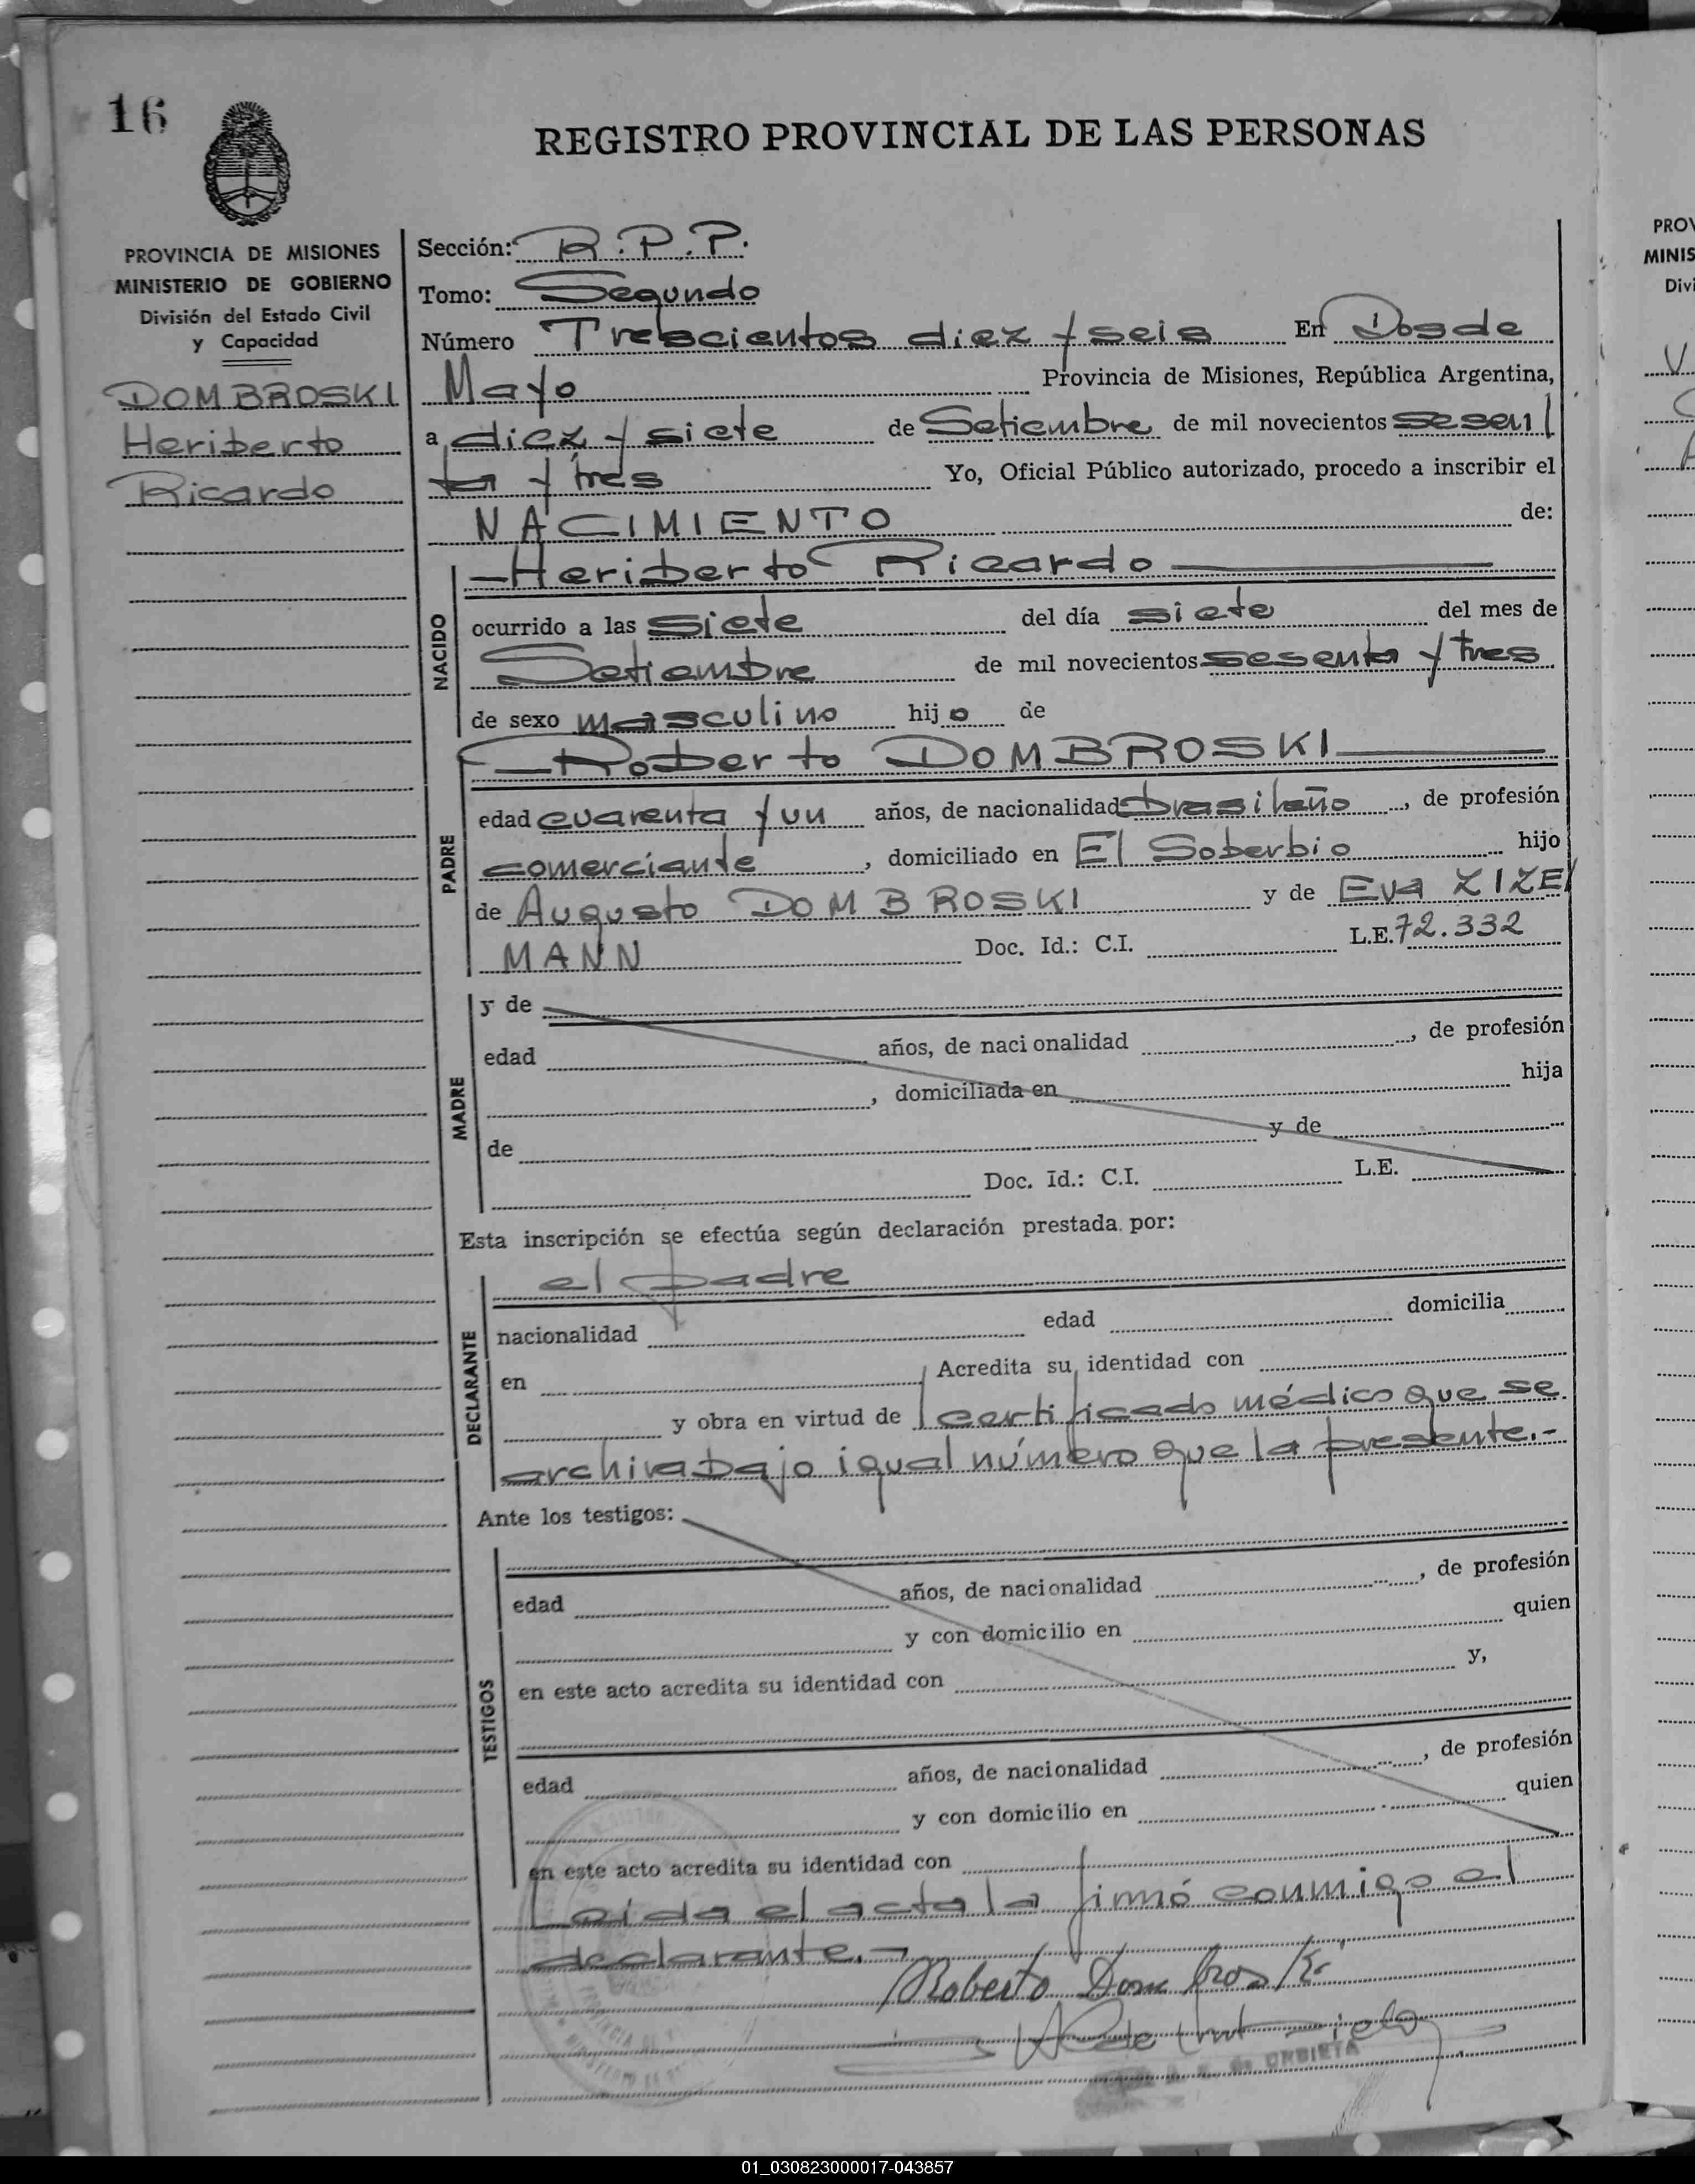 16
REGISTRO PROVINCIAL DE LAS PERSONAS
PROVINCIA DE MISIONES
MINISTERIO DE GOBIERNO
División del Estado Civil
y Capacidad
DOMBROSKI
Heriberto
Ricardo
Sección: R.P.P.
Tomo: Segundo
Número Trescientos diez y seis En Dos de
Mayo Provincia de Misiones, República Argentina,
a diez y siete de Setiembre de mil novecientos sesen
ta y tres Yo, Oficial Público autorizado, procedo a inscribir el
NACIMIENTO de:
NACIDO
Heriberto Ricardo
ocurrido a las siete del día siete del mes de
Setiembre de mil novecientos sesenta y tres
de sexo masculino hijo de
PADRE
Roberto DOMBROSKI
edad cuarenta y un años, de nacionalidad brasileño, de profesión
comerciante, domiciliado en El Soberbio hijo
de Augusto DOMBROSKI y de Eva ZIZE
MANN Doc. Id.: C.I. L.E. 72.332
MADRE
y de
edad años, de nacionalidad, de profesión
, domiciliada en hija
de y de
Doc. Id.: C.I. L.E.
Esta inscripción se efectúa según declaración prestada por:
DECLARANTE
el padre
nacionalidad edad domicilia
en Acredita su identidad con
y obra en virtud de certificado médico que se
archiva bajo igual número que la presente.-
Ante los testigos:
TESTIGOS
edad años, de nacionalidad, de profesión
y con domicilio en quien
en este acto acredita su identidad con y,
edad años, de nacionalidad, de profesión
y con domicilio en quien
en este acto acredita su identidad con
Leida el acta la firmó conmigo el
declarante.-
Roberto Dombroski
PROV
MINIS
Divi
01_030823000017-043857